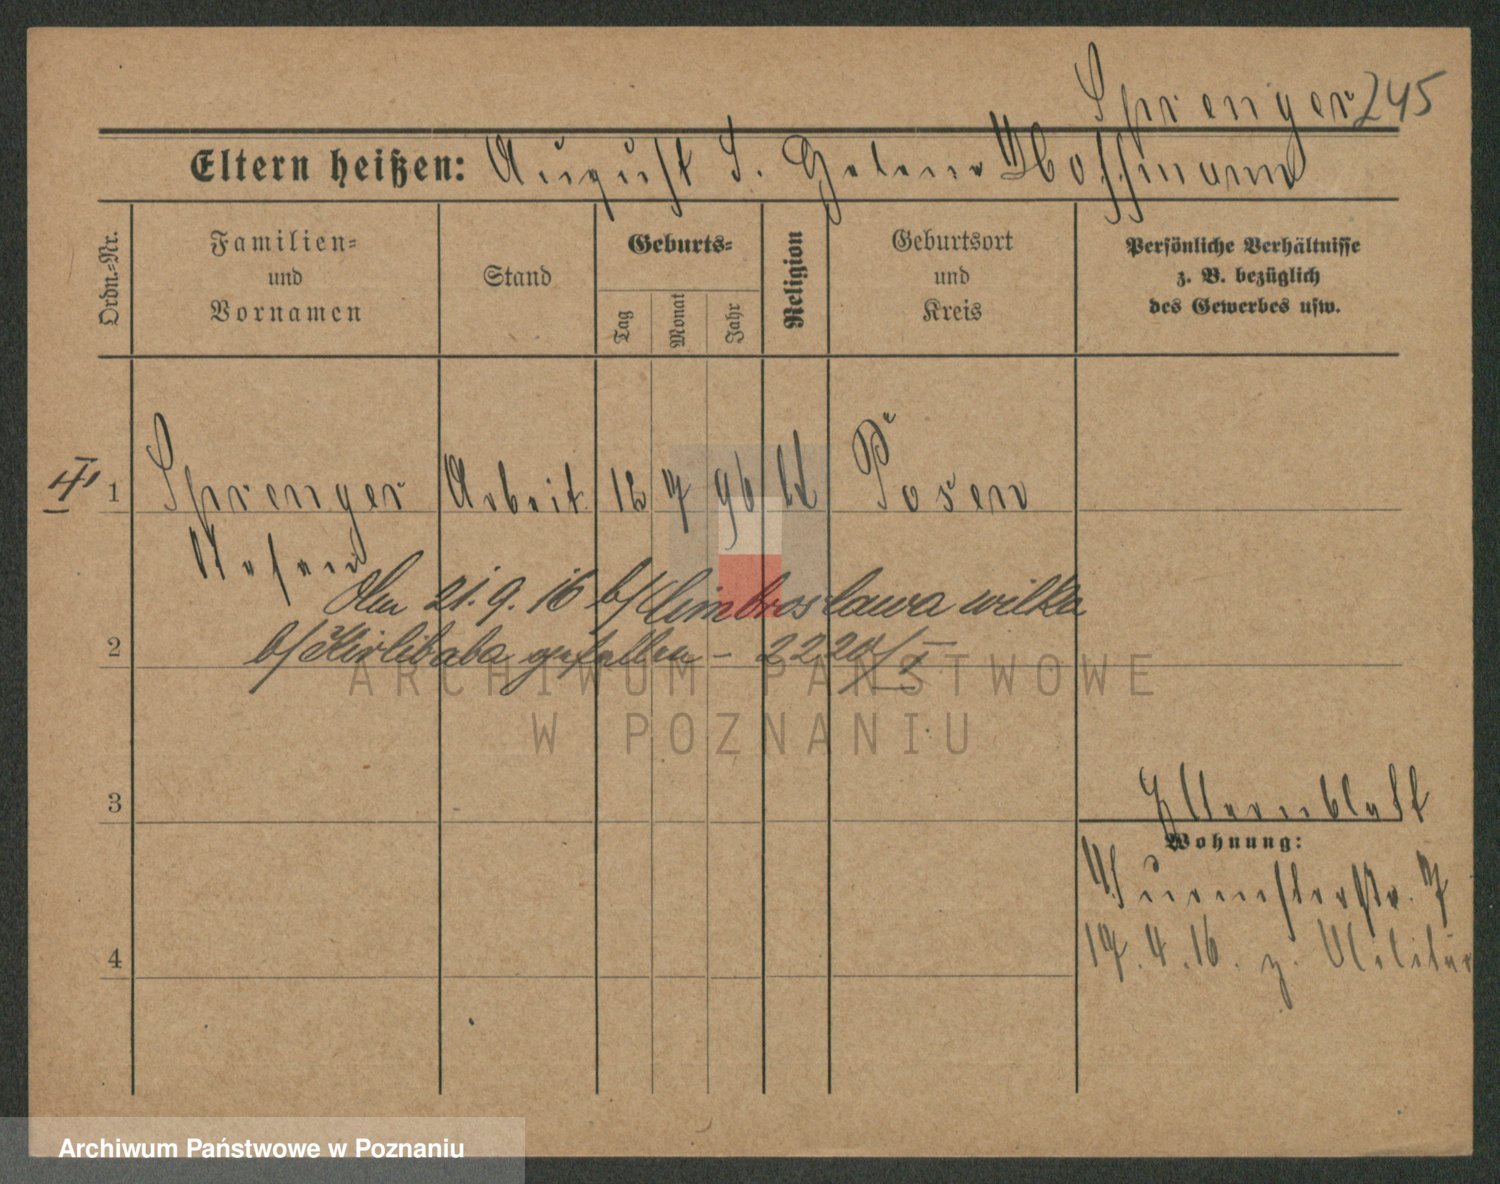 Sprenger 245
Eltern heißen: August S. Helene Hoffmann
Ordn.-Nr.
Familien-
und
Vornamen
Stand
Geburts-
Tag
Monat
Jahr
Religion
Geburtsort
und
Kreis
Persönliche Verhältnisse
z. B. bezüglich
des Gewerbes usw.
1 Sprenger Arbeit. 12 7 96 Posen
Am 21.9.16 b/ Cimbroslawa wilka
2 b/ Kirlibaba gefallen - 2220/I
ARCHIWUM PAŃSTWOWE
W POZNANIU
3
Elternblatt
Wohnung:
7
4
17.4.16. z. Militär
Archiwum Państwowe w Poznaniu